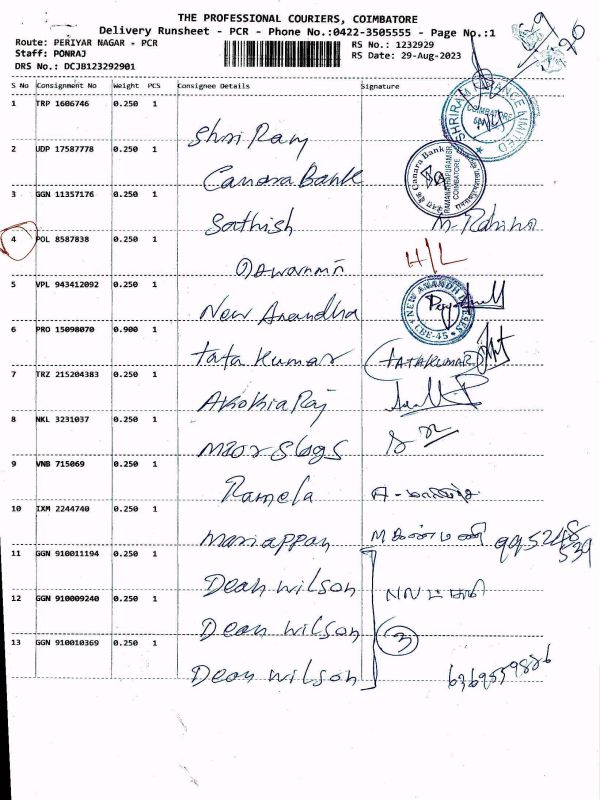 THE PROFESSIONAL COURIERS, COIMBATORE
Delivery Runsheet - PCR - Phone No.:0422-3505555 - Page No.:1
Route: PERIYAR NAGAR - PCR RS No.: 1232929
Staff: PONRAJ RS Date: 29-Aug-2023
DRS No.: DCJB123292901
S No Consignment No Weight PCS Consignee Details Signature
1 TRP 1606746 0.250 1 Shri Ram
SHRIRAM FINANCE LIMITED COIMBATORE
2 UDP 17587778 0.250 1 Canara Bank
Canara Bank RAMANATHAPURAM BR COIMBATORE
3 GGN 11357176 0.250 1 Sathish
4 POL 8587838 0.250 1 H/L
5 VPL 943412092 0.250 1 New Anandha
NEW ANANDH CBE-45
6 PRO 15098070 0.900 1 Tata Kumar (TATAKUMAR)
7 TRZ 215204383 0.250 1
8 NKL 3231037 0.250 1
9 VNB 715069 0.250 1 Ramela
10 IXM 2244740 0.250 1 Mariappan
11 GGN 910011194 0.250 1 Dean Wilson
12 GGN 910009240 0.250 1 Dean Wilson 3
13 GGN 910010369 0.250 1 Dean Wilson